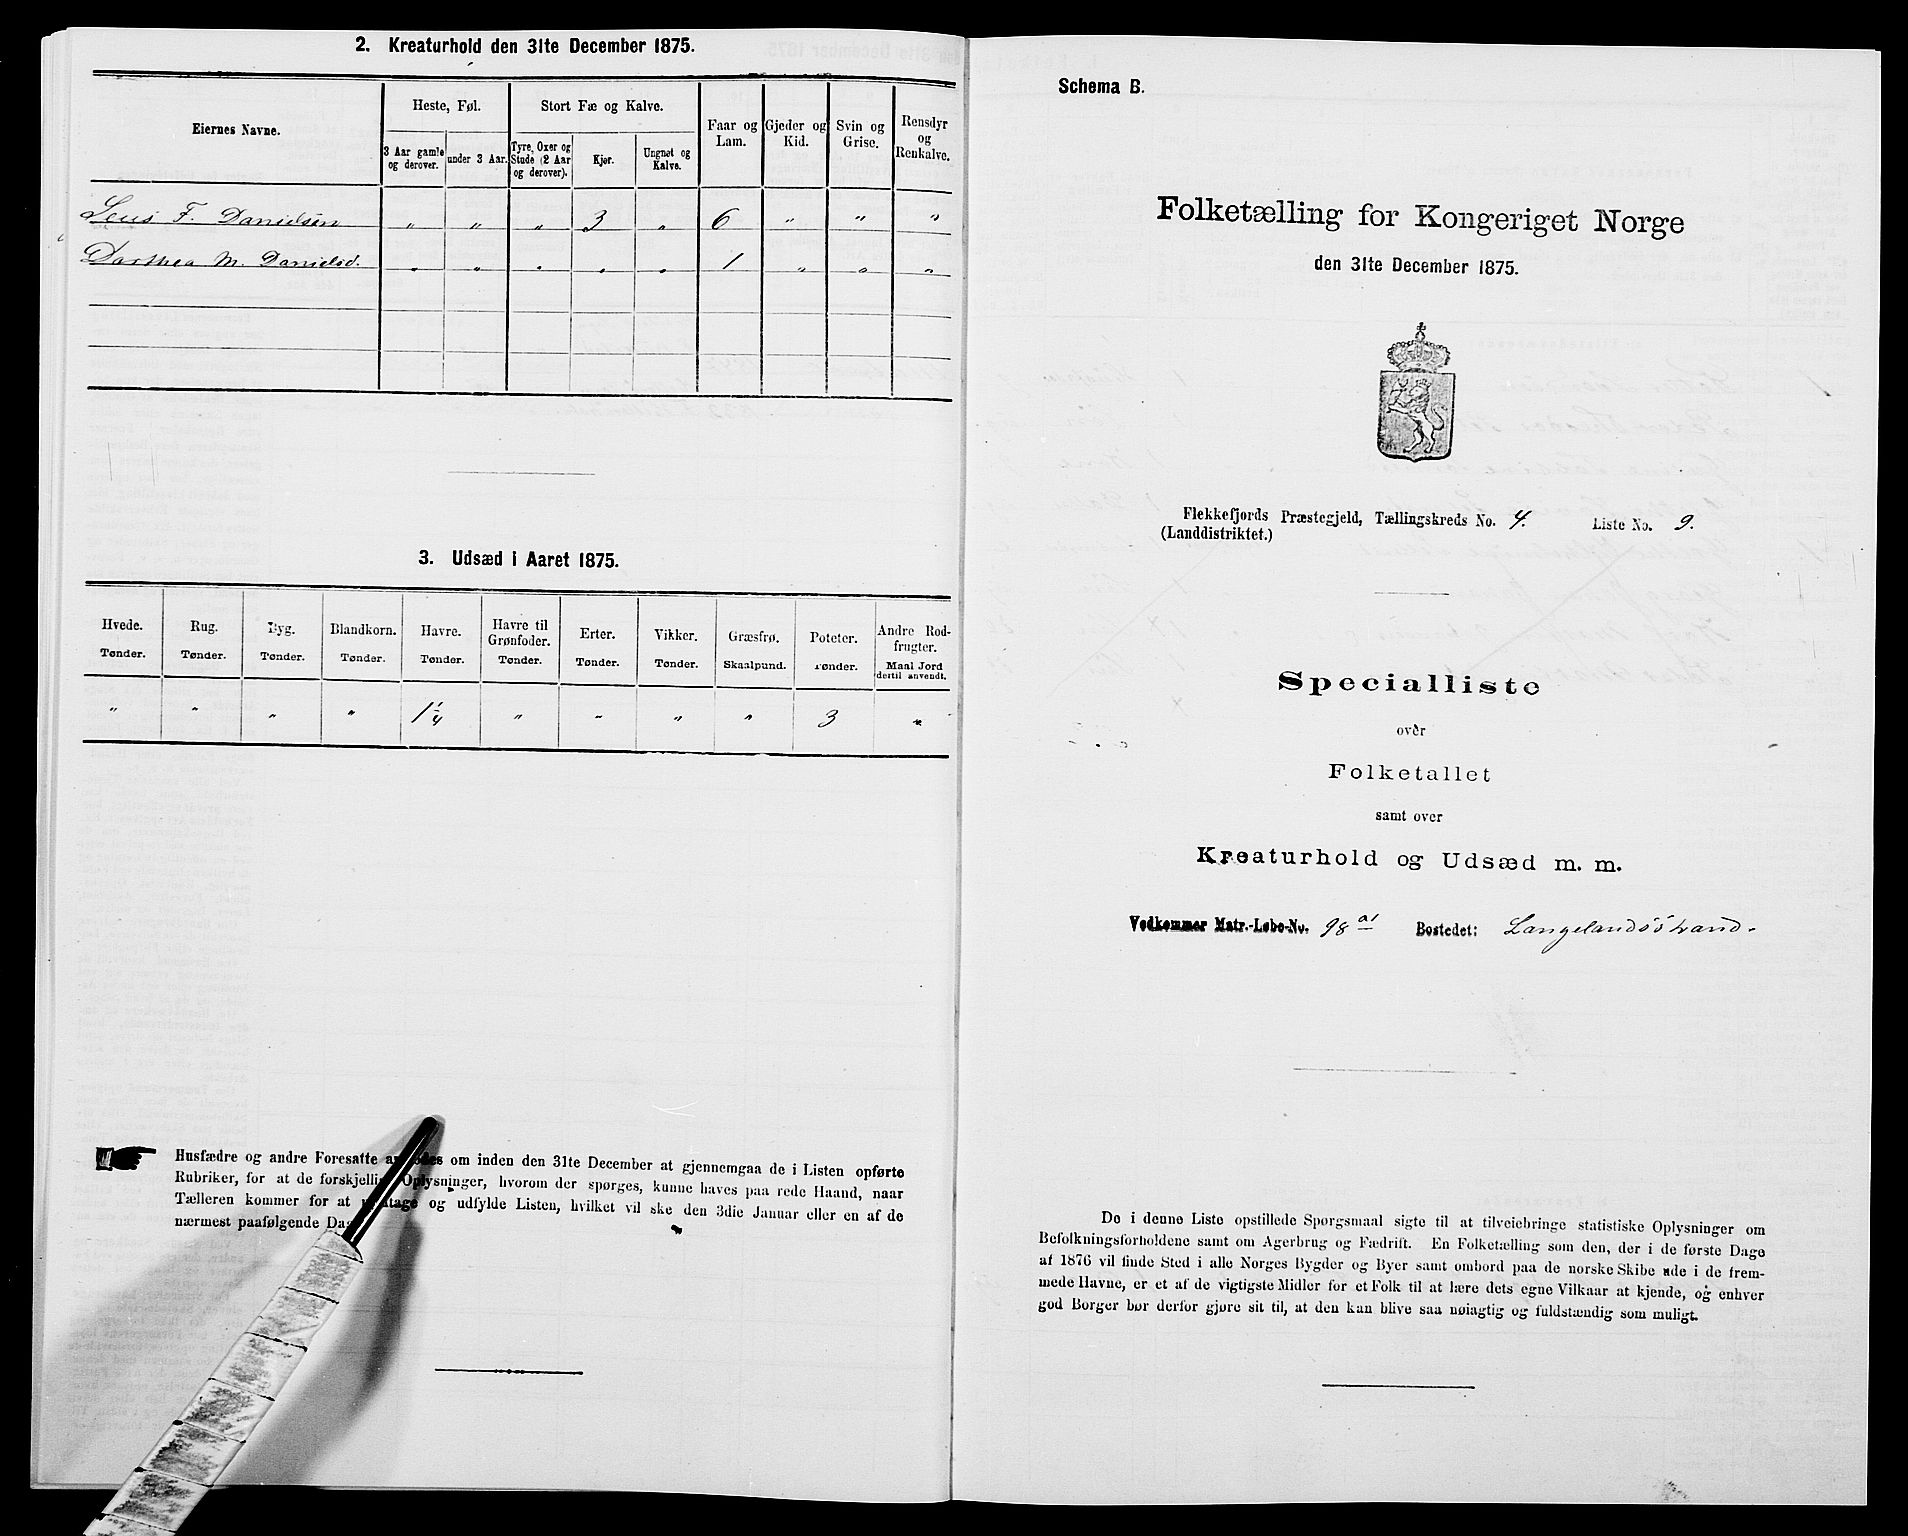 2. Kreaturhold den 31te December 1875.
Eiernes Navne.
Heste, Føl.
3 Aar gamle og derover.
under 3 Aar.
Stort Fæ og Kalve.
Tyre, Oxer og Stude (2 Aar og derover).
Kjør.
Ungnøt og Kalve.
Faar og Lam.
Gjeder og Kid.
Svin og Grise.
Rensdyr og Renkalve.
F. Danielsen " " " 3 " 6 " " "
Dorthea M. Danielsd. " " " " " 1 " " "
3. Udsæd i Aaret 1875.
Hvede. Rug. Byg. Blandkorn. Havre. Havre til Grønfoder. Erter. Vikker. Græsfrø. Poteter. Andre Rodfrugter.
Tønder. Tønder. Tønder. Tønder. Tønder. Tønder. Tønder. Tønder. Skaalpund. Tønder. Maal Jord dertil anvendt.
" " " " 1 1/4 " " " " 3 "
Husfædre og andre Foresatte om inden den 31te December at gjennemgaa de i Listen opførte
Rubriker, for at de forskjellige Oplysninger, hvorom der spørges, kunne haves paa rede Haand, naar
Tælleren kommer for at og udfylde Listen, hvilket vil ske den 3die Januar eller en af de
nærmest paafølgende
Schema B.
Folketælling for Kongeriget Norge
den 31te December 1875.
Flekkefjords Præstegjeld, Tællingskreds No. 4. Liste No. 9.
(Landdistriktet.)
Specialliste
over
Folketallet
samt over
Kreaturhold og Udsæd m. m.
Vedkommer Matr.-Løbe-No. 98 a1 Bostedet: Langelandsstrand.
De i denne Liste opstillede Spørgsmaal sigte til at tilveiebringe statistiske Oplysninger om
Befolkningsforholdene samt om Agerbrug og Fædrift. En Folketælling som den, der i de første Dage
af 1876 vil finde Sted i alle Norges Bygder og Byer samt ombord paa de norske Skibe ude i de frem-
mede Havne, er et af de vigtigste Midler for et Folk til at lære dets egne Vilkaar at kjende, og enhver
god Borger bør derfor gjøre sit til, at den kan blive saa nøiagtig og fuldstændig som muligt.